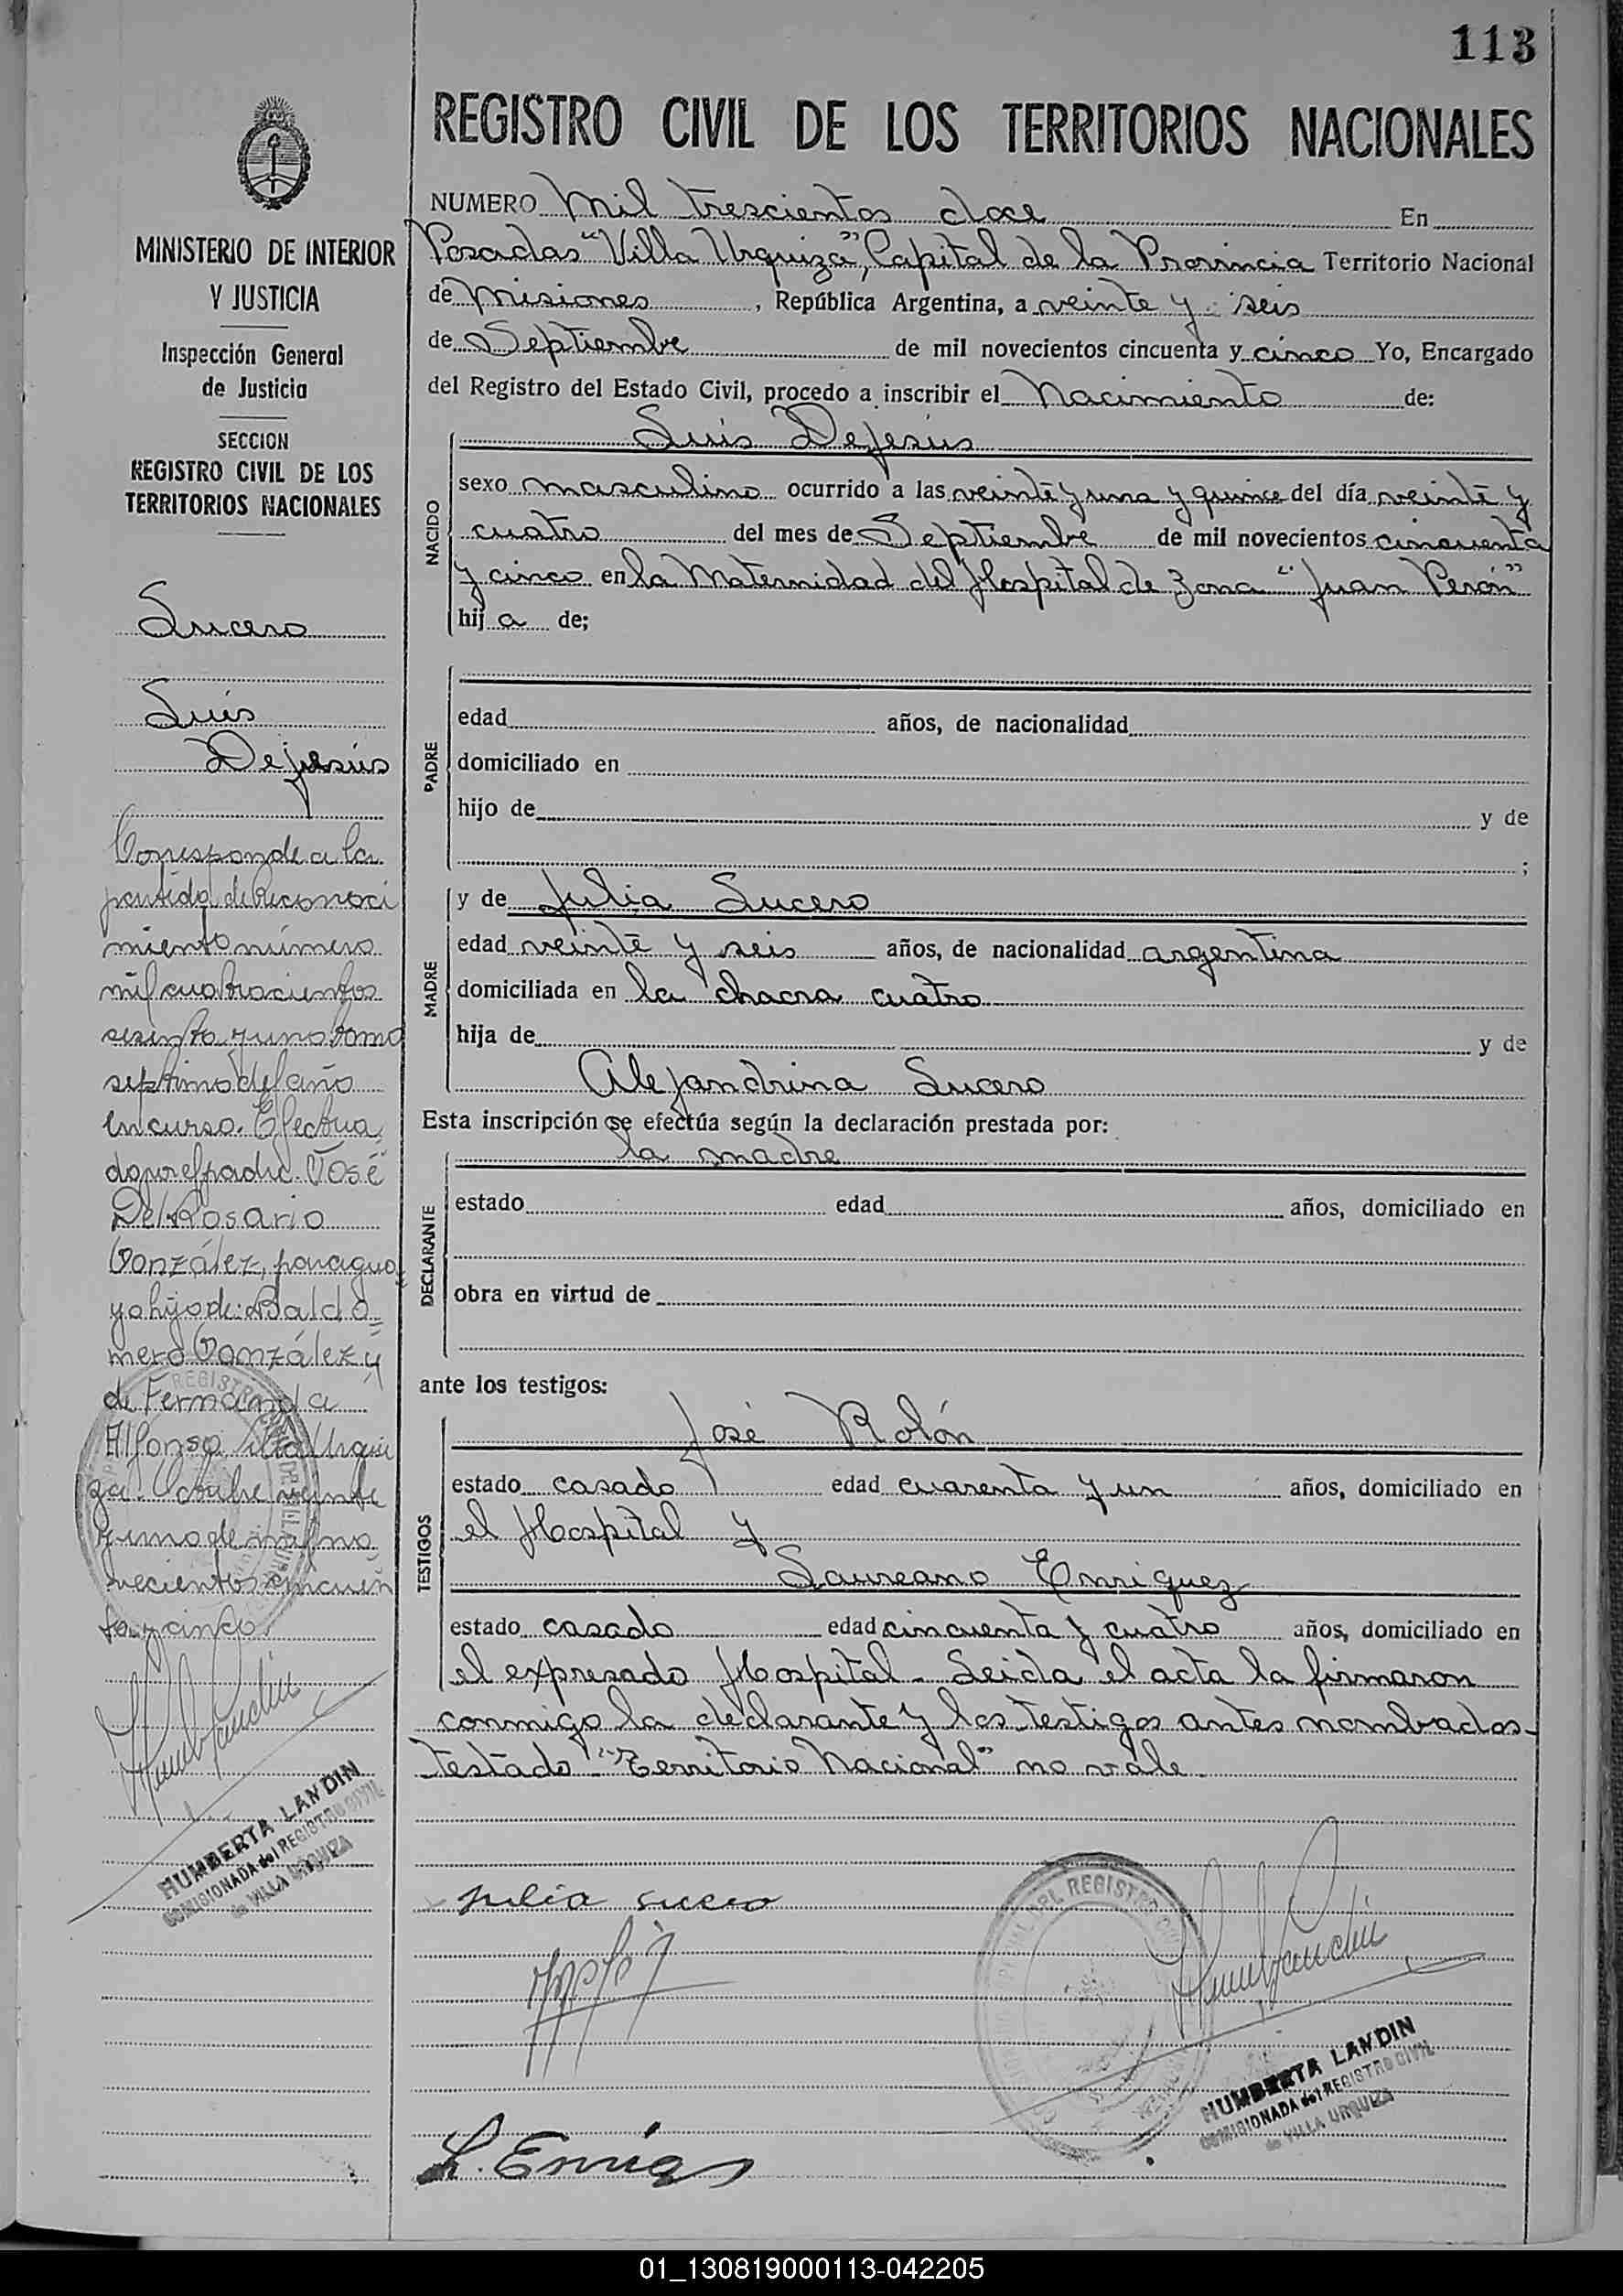 113
REGISTRO CIVIL DE LOS TERRITORIOS NACIONALES
MINISTERIO DE INTERIOR
Y JUSTICIA
Inspección General
de Justicia
SECCION
REGISTRO CIVIL DE LOS
TERRITORIOS NACIONALES
Sucero
Luis
Dejesús
Corresponde a la
partida de Reconoci
miento número
mil cuatrocientos
sesenta y uno tomo
septimo del año
en curso. Efectua
do por el padre José
Del Rosario
González, paragua
yo hijo de: Baldo=
mero González y
de Fernanda
Alfonso Villa Urqui
za. Octubre veinte
y uno de mil no
vecientos cincuen
ta y cinco
HUMBERTA LANDIN
COMISIONADA del REGISTRO CIVIL
de VILLA URQUIZA
NUMERO Mil trescientos doce En
Posadas "Villa Urquiza", Capital de la Provincia Territorio Nacional
de Misiones, República Argentina, a veinte y seis
de Septiembre de mil novecientos cincuenta y cinco Yo, Encargado
del Registro del Estado Civil, procedo a inscribir el Nacimiento de:
Luis Dejesús
NACIDO
sexo masculino ocurrido a las veinte y una y quince del día veinte y
cuatro del mes de Septiembre de mil novecientos cincuenta
y cinco en la Maternidad del Hospital de Zona "Juan Perón"
hij a de;
PADRE
edad años, de nacionalidad
domiciliado en
hijo de y de
;
MADRE
y de Julia Sucero
edad veinte y seis años, de nacionalidad argentina
domiciliada en la chacra cuatro
hija de y de
Alejandrina Sucero
Esta inscripción se efectúa según la declaración prestada por:
la madre
DECLARANTE
estado edad años, domiciliado en
obra en virtud de
ante los testigos:
José Rolón
TESTIGOS
estado casado edad cuarenta y un años, domiciliado en
el Hospital y
Laureano Enriquez
estado casado edad cincuenta y cuatro años, domiciliado en
el expresado Hospital. Leida el acta la firmaron
conmigo la declarante y los testigos antes nombrados-
testado "Territorio Nacional" no vale
Julia sucero
L. Enriq
HUMBERTA LANDIN
COMISIONADA del REGISTRO CIVIL
de VILLA URQUIZA
01_130819000113-042205